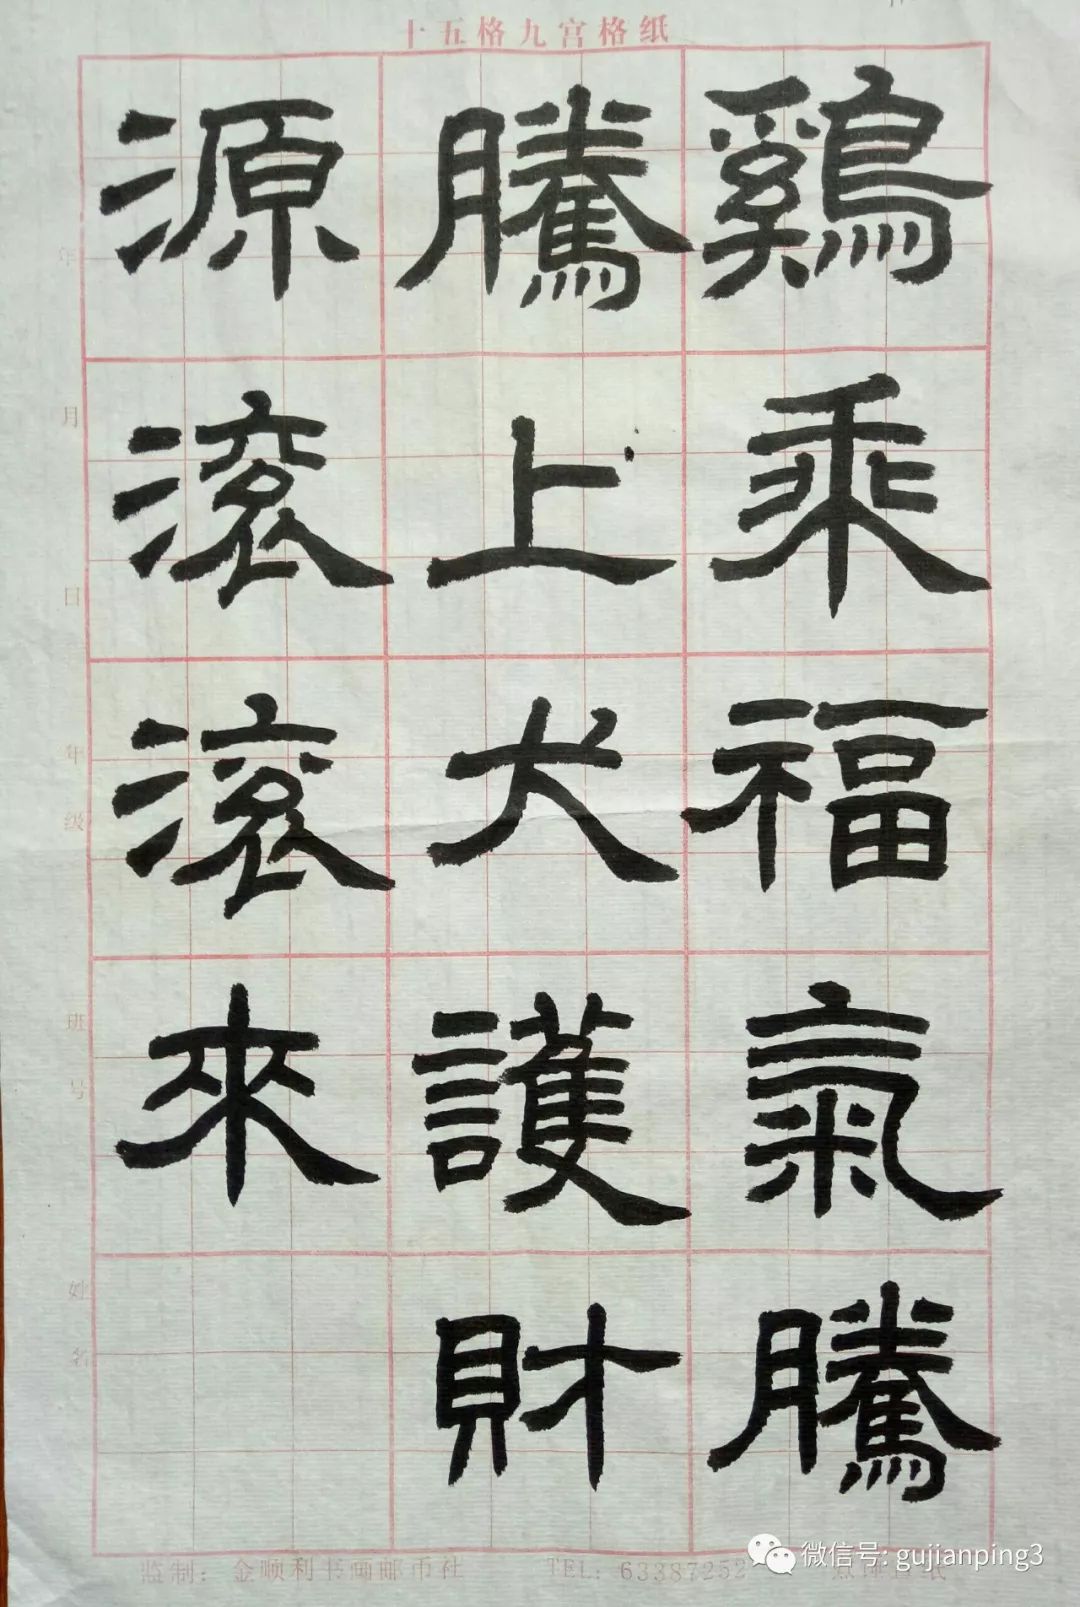 十五格九宫格纸
鷄乘福氣騰
騰上犬護財
源滚滚來
年
月
日
年
级
班
号
姓
名
监制：金顺利书画邮币社 TEL: 63387252
微信号: gujianping3